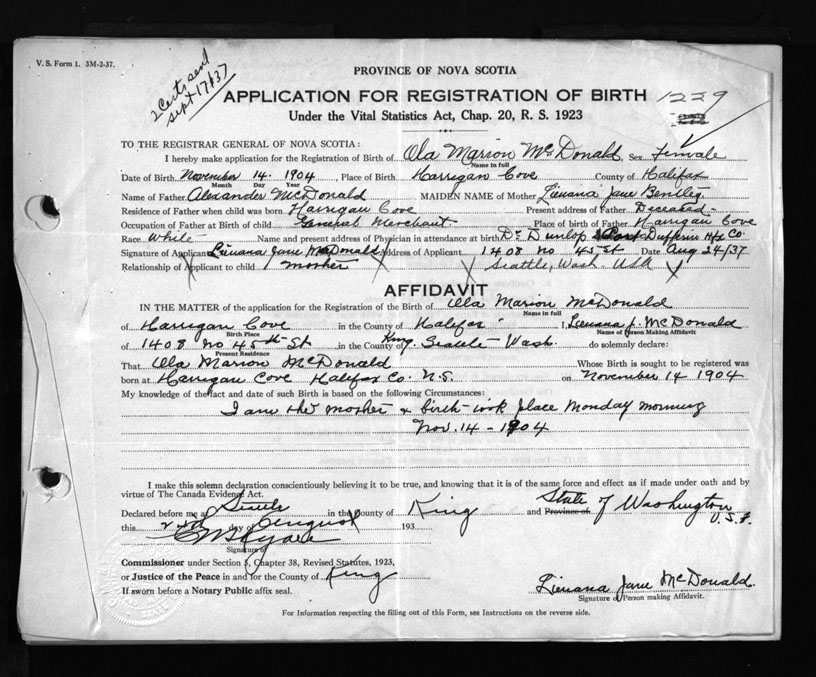 V. S. Form 1. 3M-2-37.
2 Certs sent
Sept 17/37
PROVINCE OF NOVA SCOTIA
APPLICATION FOR REGISTRATION OF BIRTH 1229
Under the Vital Statistics Act, Chap. 20, R. S. 1923
TO THE REGISTRAR GENERAL OF NOVA SCOTIA:
I hereby make application for the Registration of Birth of Ola Marion McDonald Sex Female
Name in full
Date of Birth November 14. 1904, Place of Birth Harrigan Cove County of Halifax
Month Day Year
Name of Father Alexander McDonald MAIDEN NAME of Mother Lieuana Jane Bentley
Residence of Father when child was born Harrigan Cove Present address of Father Deceased
Occupation of Father at Birth of child General Merchant Place of birth of Father Harrigan Cove
Race White Name and present address of Physician in attendance at birth Dr Dunlop Port Dufferin Hfx Co.
Signature of Applicant Lieuana Jane McDonald Address of Applicant 1408 No 45 St Date Aug 24/37
Relationship of Applicant to child Mother Seattle, Wash. USA
AFFIDAVIT
IN THE MATTER of the application for the Registration of the Birth of Ola Marion McDonald
Name in full
of Harrigan Cove in the County of Halifax I, Lieuana J. McDonald
Birth Place Name of Person Making Affidavit
of 1408 No 45th St in the County of King. Seattle Wash. do solemnly declare:
Present Residence
That Ola Marion McDonald Whose Birth is sought to be registered was
born at Harrigan Cove Halifax Co. N.S. on November 14 1904
My knowledge of the fact and date of such Birth is based on the following Circumstances:
I am the mother & birth took place Monday morning
Nov. 14 - 1904
I make this solemn declaration conscientiously believing it to be true, and knowing that it is of the same force and effect as if made under oath and by
virtue of The Canada Evidence Act.
Declared before me at Seattle in the County of King and Province of State of Washington
U.S.A.
this day of August 193
Signature of
Commissioner under Section 3, Chapter 38, Revised Statutes, 1923,
or Justice of the Peace in and for the County of King
If sworn before a Notary Public affix seal.
Lieuana Jane McDonald.
Signature of Person making Affidavit.
For Information respecting the filling out of this Form, see Instructions on the reverse side.